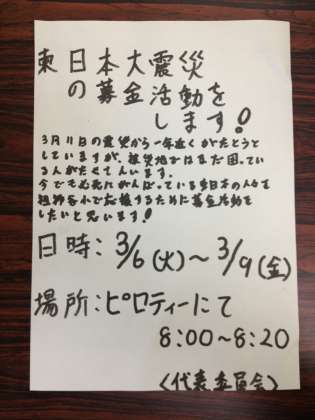 東日本大震災
の募金活動を
します!
3月11日の震災から一年近くがたとうと
していますが、被災地ではまだ困ってい
る人がたくさんいます。
今でも必死にがんばっている東日本の人々を
祖師谷小で応援するために募金活動を
したいと思います!
日時:3/6(火)〜3/9(金)
場所:ピロティーにて
8:00〜8:20
<代表委員会>